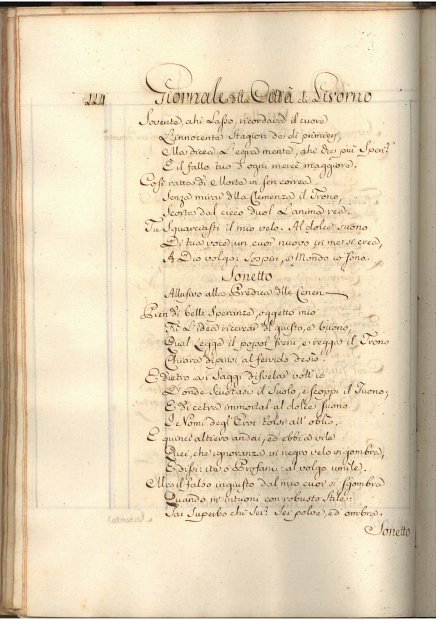 224 Giornale della Città di Livorno
Sovente, ahi Lasso, ricordava il cuore
L'innocente Stagion de' dì primieri,
Ma dicea L'egra mente, ahi che più Speri?
È il fallo tuo d'ogni mercè maggiore,
Così ratta di Morte in sen correa
Senza mirar della Clemenza il Trono,
Scorta dal cieco duol L'anima rea.
Tu Squarciasti il mio velo. Al dolce suono
Di tua voce un cuor nuovo in me si crea,
A Dio volgo i Sospiri, e Mondo io sona.
Sonetto
Allusivo alla Predica delle Ceneri
Pien di belle Speranze, oggetto mio
Fù L'idea ricercar del giusto, e buono,
Qual Legge il popol freni, e regga il Trono
al fervido desio.
E dietro a i Saggi disvelar volli io
D'onde Scuotasi il Suolo, e scoppi il Tuono,
E di cetra immortal al dolce suono
I Nomi degl' Eroi tolsi all' oblio,
E quinci altiero andai, ed ebbi a vile
Quei, che ignoranza in negro velo ingombra,
E dissi: ite o Profani: al volgo umile.
Mà il falso inquisto dal mio cuor si sgombra
Quando m'intuoni con robusto Stile:
Sai Superbo chi Sei? Sei polve, ed ombra.
Sonetto